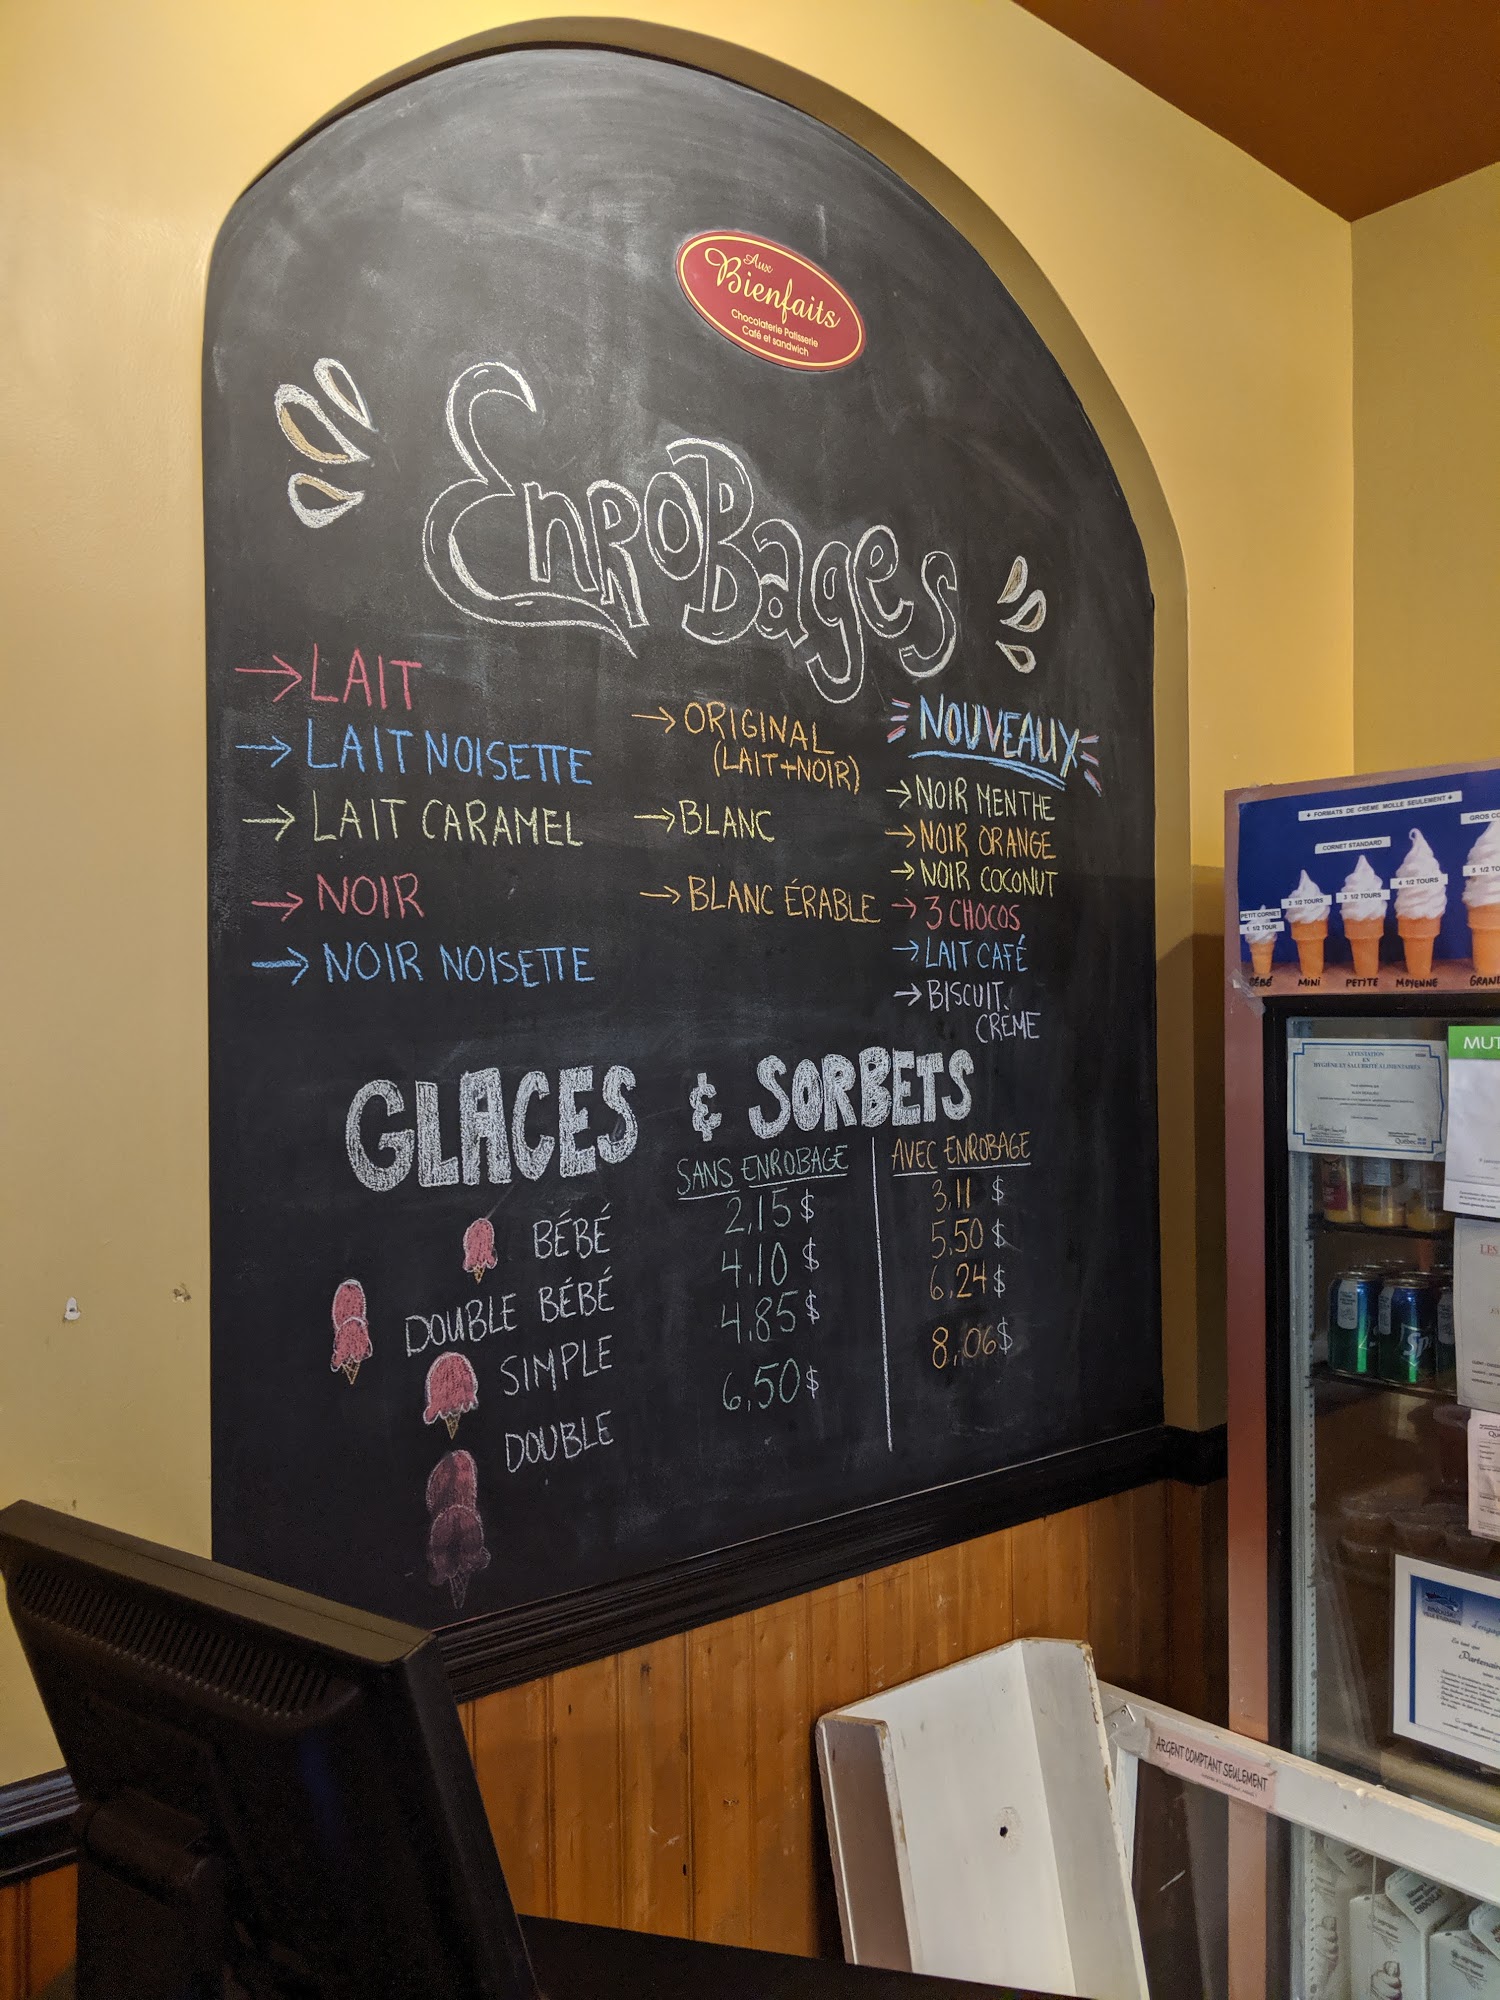 Aux
Bienfaits
Chocolaterie Patisserie
Café et sandwich
EnRoBages
LAIT
LAIT NOISETTE
LAIT CARAMEL
NOIR
NOIR NOISETTE
ORIGINAL
(LAIT+NOIR)
BLANC
BLANC ÉRABLE
NOUVEAUX
NOIR MENTHE
NOIR ORANGE
NOIR COCONUT
3 CHOCOS
LAIT CAFÉ
BISCUIT
CRÈME
GLACES & SORBETS
SANS ENROBAGE
AVEC ENROBAGE
BÉBÉ 2,15 $ 3,11 $
DOUBLE BÉBÉ 4,10 $ 5,50 $
SIMPLE 4,85 $ 6,24 $
DOUBLE 6,50 $ 8,06 $
FORMATS DE CRÈME MOLLE SEULEMENT
CORNET STANDARD
GROS
PETIT CORNET
1 1/2 TOUR
2 1/2 TOURS
3 1/2 TOURS
4 1/2 TOURS
5 1/2
BÉBÉ
MINI
PETITE
MOYENNE
GRAND
ATTESTATION
EN
HYGIÈNE ET SALUBRITÉ ALIMENTAIRES
Québec
MUT
LES
Partenaire
ARGENT COMPTANT SEULEMENT